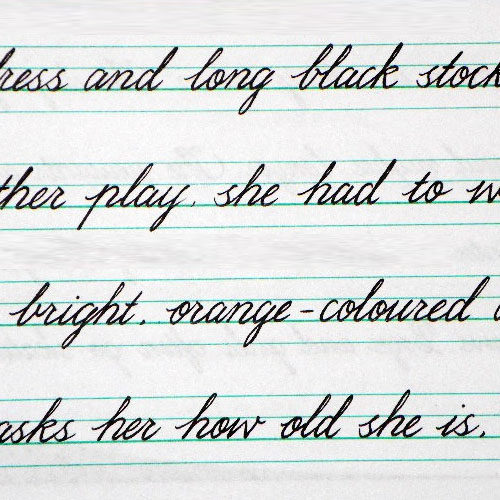 ress and long black stock
ther play. she had to w
bright. orange-coloured
asks her how old she is.